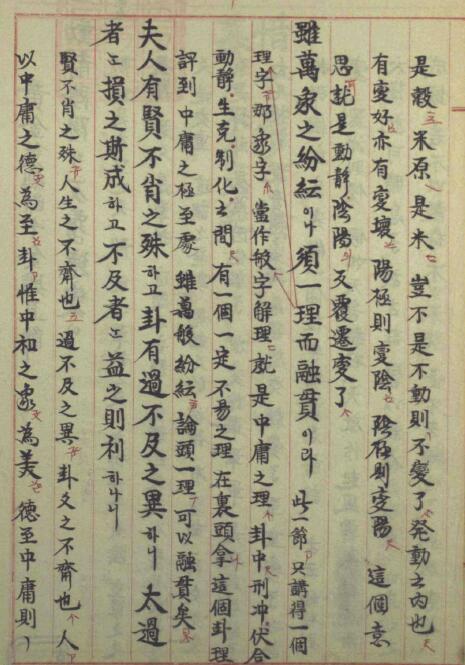 是穀米原是米豈不是不動則不變了発動之内也
有變好亦有變壞陽極則變陰陰極則變陽這個意
思說是動靜陰陽反覆遷變了
雖萬象之紛紜이나須一理而融貫이라此一節只講得一個
理字那象字當作般字解理就是中庸之理卦中刑冲伏合
動靜生克制化之間有一個一定不易之理在裏頭拿這個卦理
評到中庸之極至處雖萬般紛紜論頭一理可以融貫矣
夫人有賢不肖之殊하고卦有過不及之異하니太過
者는損之斯成하고不及者는益之則利하나니
賢不肖之殊人生之不齊也過不及之異卦爻之不齊也人
以中庸之德為至卦惟中和之象為美德至中庸則